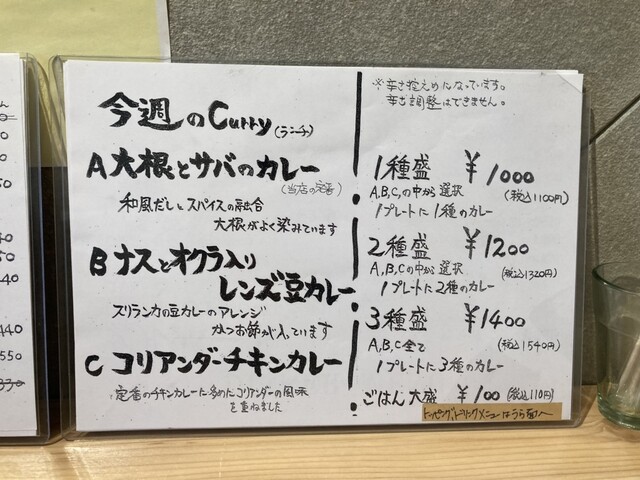 今週のCurry(ランチ)
A 大根とサバのカレー
(当店の定番)
和風だしとスパイスの融合
大根がよく染みています
B ナスとオクラ入り
レンズ豆カレー
スリランカの豆カレーのアレンジ
かつお節が入っています
C コリアンダーチキンカレー
定番のチキンカレーに多めにコリアンダーの風味
を重ねました
※辛さ控えめになっています。
辛さ調整はできません。
1種盛 ¥1000
A,B,Cの中から選択 (税込1100円)
1プレートに1種のカレー
2種盛 ¥1200
A,B,Cの中から選択 (税込1320円)
1プレートに2種のカレー
3種盛 ¥1400
A,B,C全て (税込1540円)
1プレートに3種のカレー
ごはん大盛 ¥100 (税込110円)
トッピング、ドリンクメニューはうら面へ
440
550